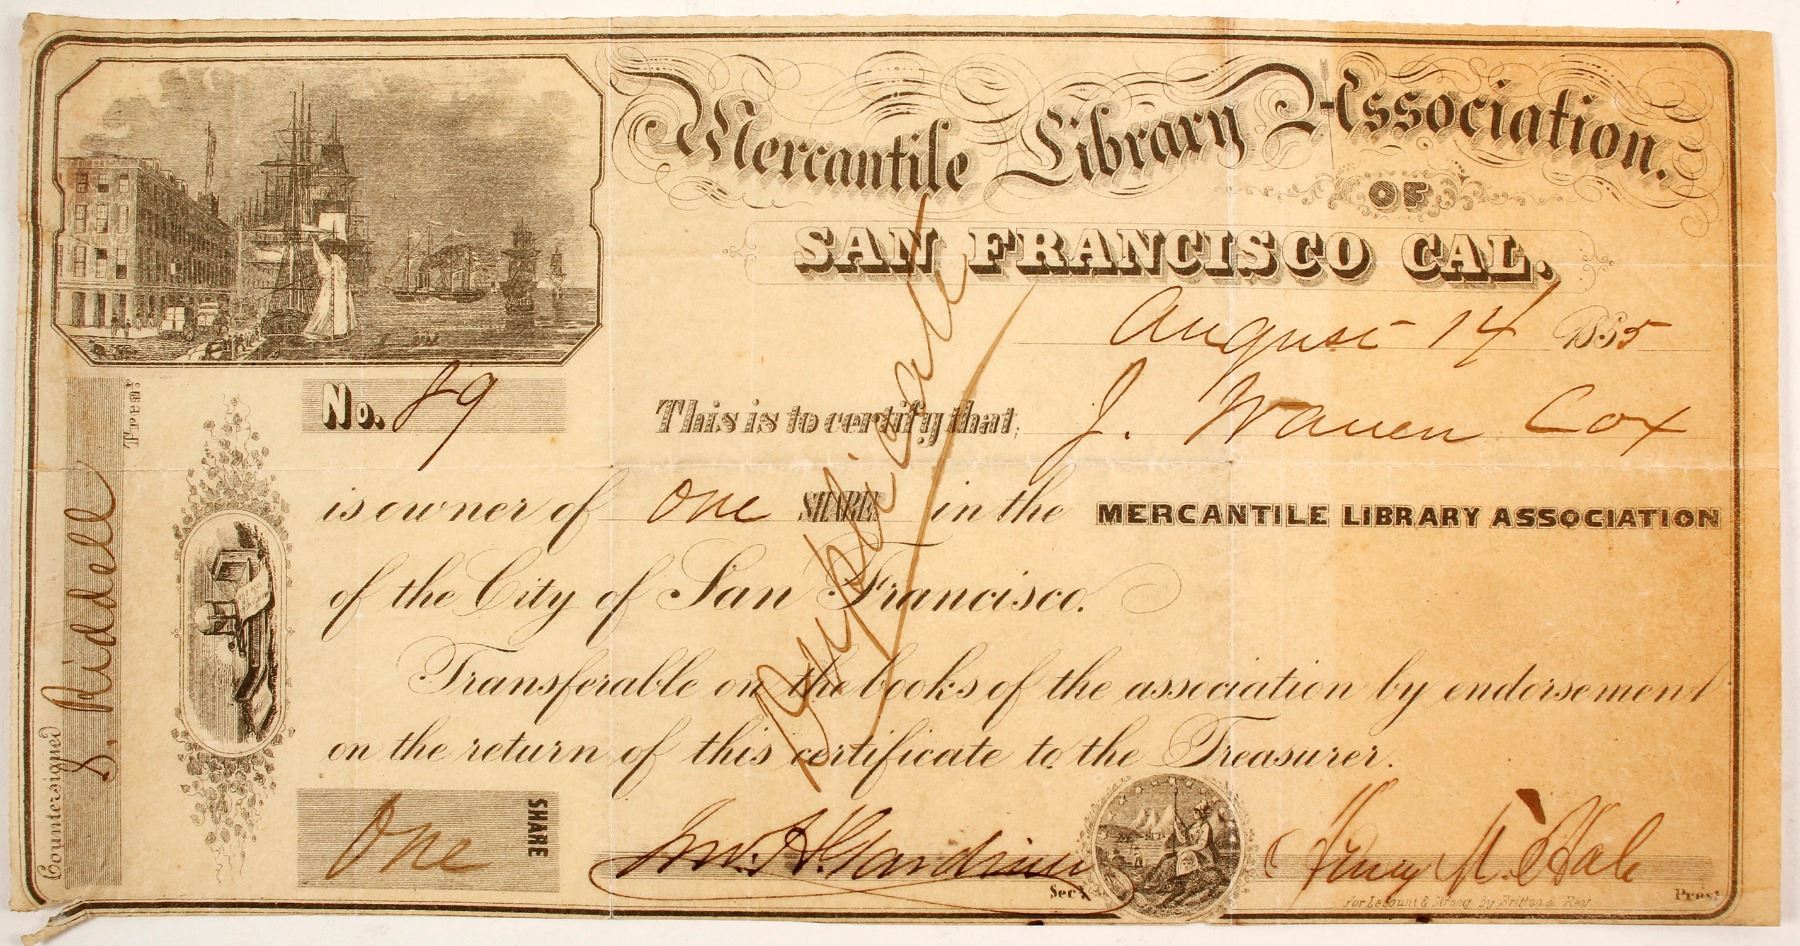 Mercantile Library Association.
OF
SAN FRANCISCO CAL.
August 14 1855
No. 89
This is to certify that, J. Warren Cox
is owner of One SHARE in the MERCANTILE LIBRARY ASSOCIATION
of the City of San Francisco.
Transferable on the books of the association by endorsement
on the return of this certificate to the Treasurer.
Duplicate
One SHARE
Jno. H. Gardiner Secy.
Henry M. Hale Prest.
for Lecount & Strong by Britton & Rey
Countersigned S. Riddell Treas.